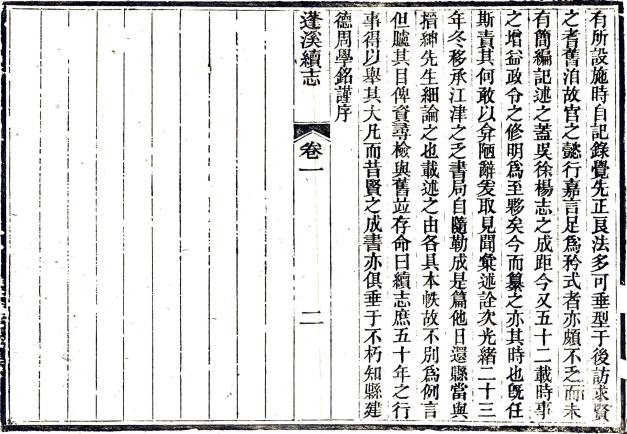 有所設施時自記錄覺先正良法多可垂型于後訪求賢
之耆舊洎故官之懿行嘉言足爲矜式者亦頗不乏而未
有簡編記述之蓋吳徐楊志之成距今又五十二載時事
之增益政令之修明爲至夥矣今而纂之亦其時也旣任
斯責其何敢以弇陋辭爰取見聞彙述詮次光緒二十三
年冬移承江津之乏書局自隨勒成是篇他日還縣當與
搢紳先生細論之也載述之由各具本帙故不別爲例言
但臚其目俾資尋檢與舊竝存命曰續志庶五十年之行
事得以舉其大凡而昔賢之成書亦俱垂于不朽知縣建
德周學銘謹序
蓬溪續志
卷一
二